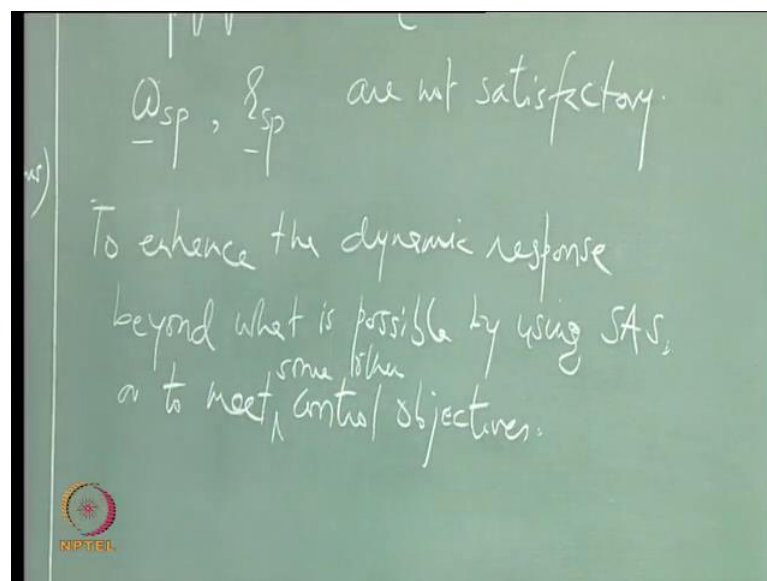 ω_sp, ξ_sp are not satisfactory.
To enhance the dynamic response
beyond what is possible by using SAS,
or to meet some other control objectives.
NPTEL